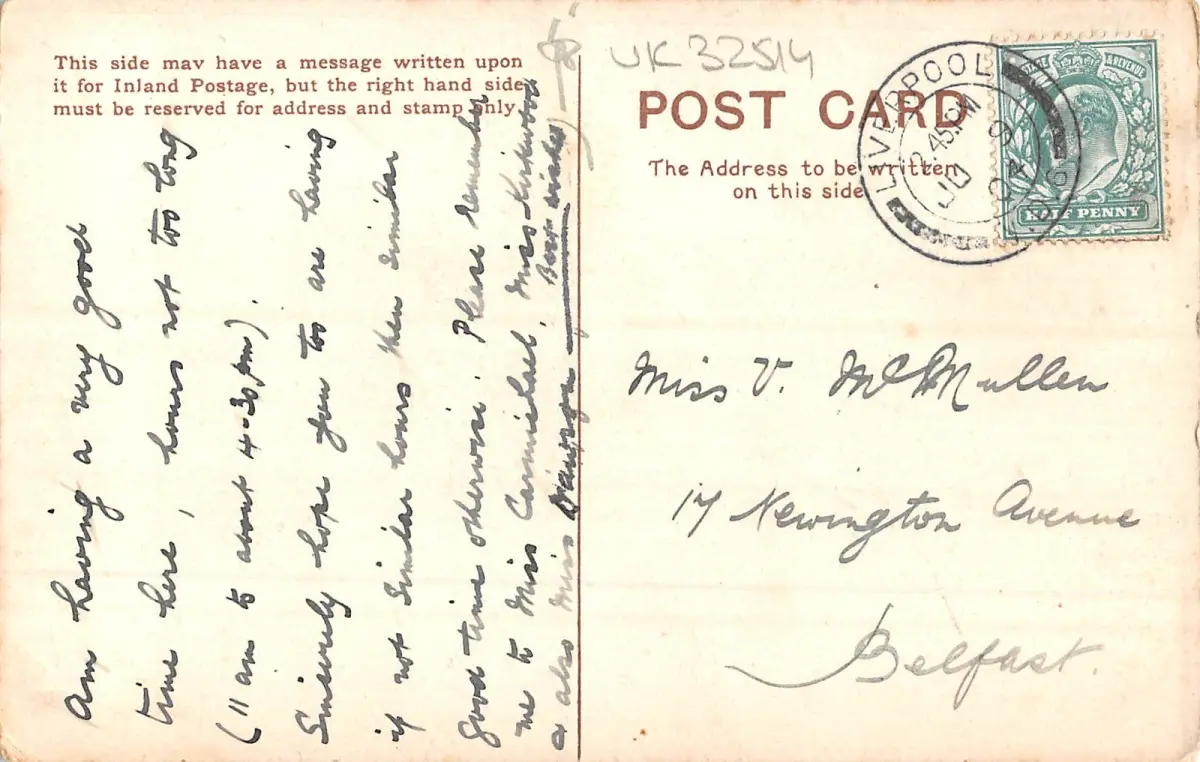 This side may have a message written upon
it for Inland Postage, but the right hand side
must be reserved for address and stamp only.
Am having a very good
time here, hours not too long
(11 am to about 4-30 pm).
Sincerely hope you too are having
if not similar hours then similar
good time otherwise. Please remember
me to Miss Carmichael, Miss Kirkwood
& also Miss
Best wishes
UK 32514
POST CARD
The Address to be written
on this side
LIVERPOOL
2.45 PM
HALF PENNY
& REVENUE
Miss V. McMullen
17 Newington Avenue
Belfast.